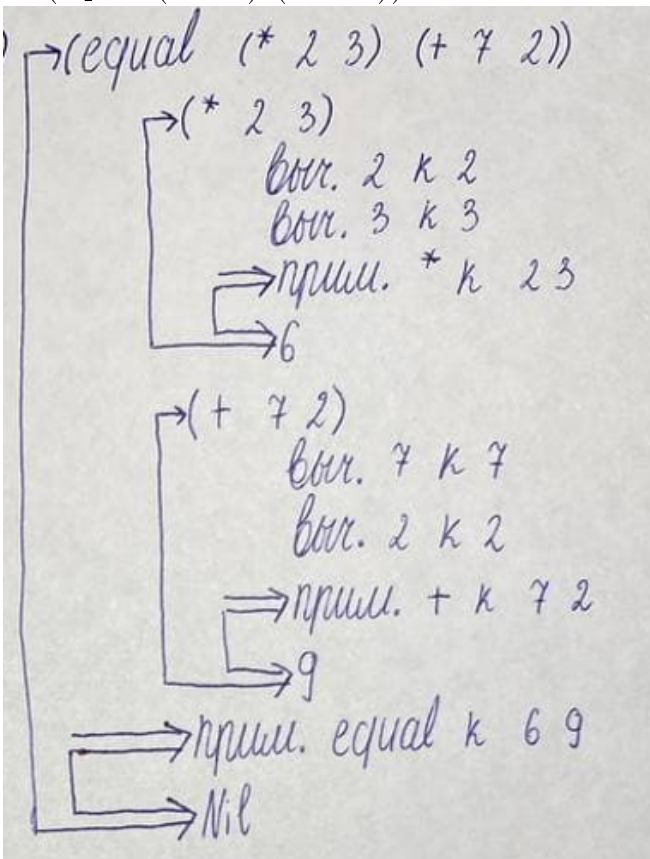 →(equal (* 2 3) (+ 7 2))
→(* 2 3)
выч. 2 к 2
выч. 3 к 3
⇒прим. * к 2 3
⇒6
→(+ 7 2)
выч. 7 к 7
выч. 2 к 2
⇒прим. + к 7 2
⇒9
⇒прим. equal к 6 9
⇒Nil